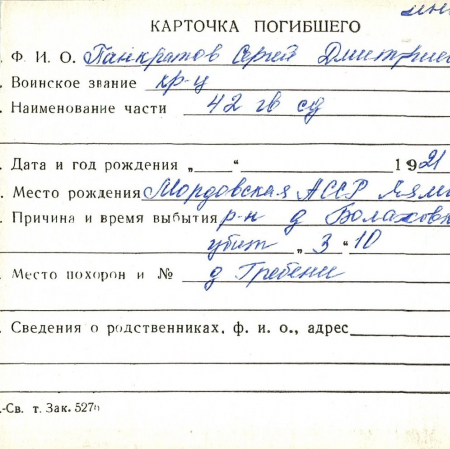 КАРТОЧКА ПОГИБШЕГО
. Ф. И. О. Панкратов Сергей Дмитриев
. Воинское звание кр-ц
. Наименование части 42 гв сд
. Дата и год рождения „ “ 1921
. Место рождения Мордовская АССР
. Причина и время выбытия р-н д Болаховк
убит „3“ 10
. Место похорон и № д Гребени
. Сведения о родственниках, ф. и. о., адрес
.-Св. т. Зак. 527